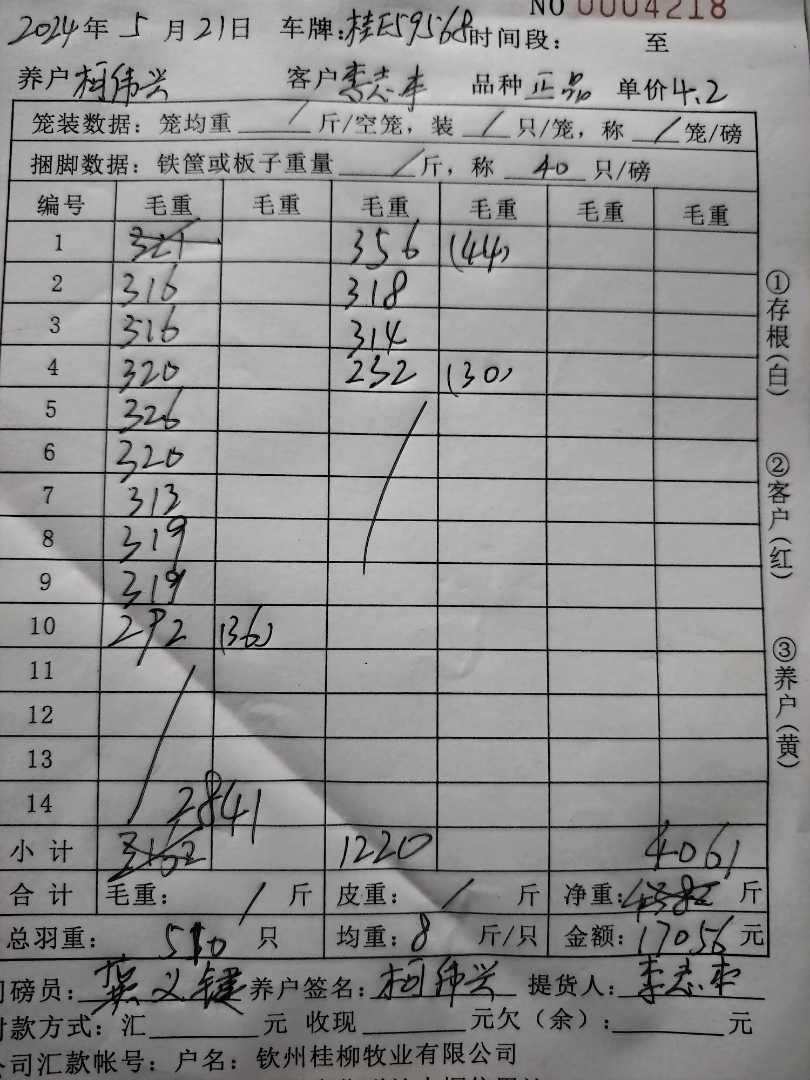 NO 0004218
2024年 5 月 21日 车牌:桂E59568 时间段: 至
养户 柯伟兴 客户 李志丰 品种 正品 单价 4.2
笼装数据: 笼均重 / 斤/空笼, 装 / 只/笼, 称 / 笼/磅
捆脚数据: 铁筐或板子重量 / 斤, 称 40 只/磅
编号 毛重 毛重 毛重 毛重 毛重 毛重
1 321 356 (44)
2 316 318
3 316 314
4 320 232 (30)
5 326
6 320
7 313
8 319
9 319
10 292 (36)
11
12
13
14 2841
小计 3162 1220 4061
合计 毛重: / 斤 皮重: / 斤 净重: 斤
总羽重: 510 只 均重: 8 斤/只 金额: 17056 元
磅员: 龚义键 养户签名: 柯伟兴 提货人: 李志丰
付款方式: 汇 元 收现 元欠(余): 元
公司汇款帐号: 户名: 钦州桂柳牧业有限公司
①存根(白)
②客户(红)
③养户(黄)